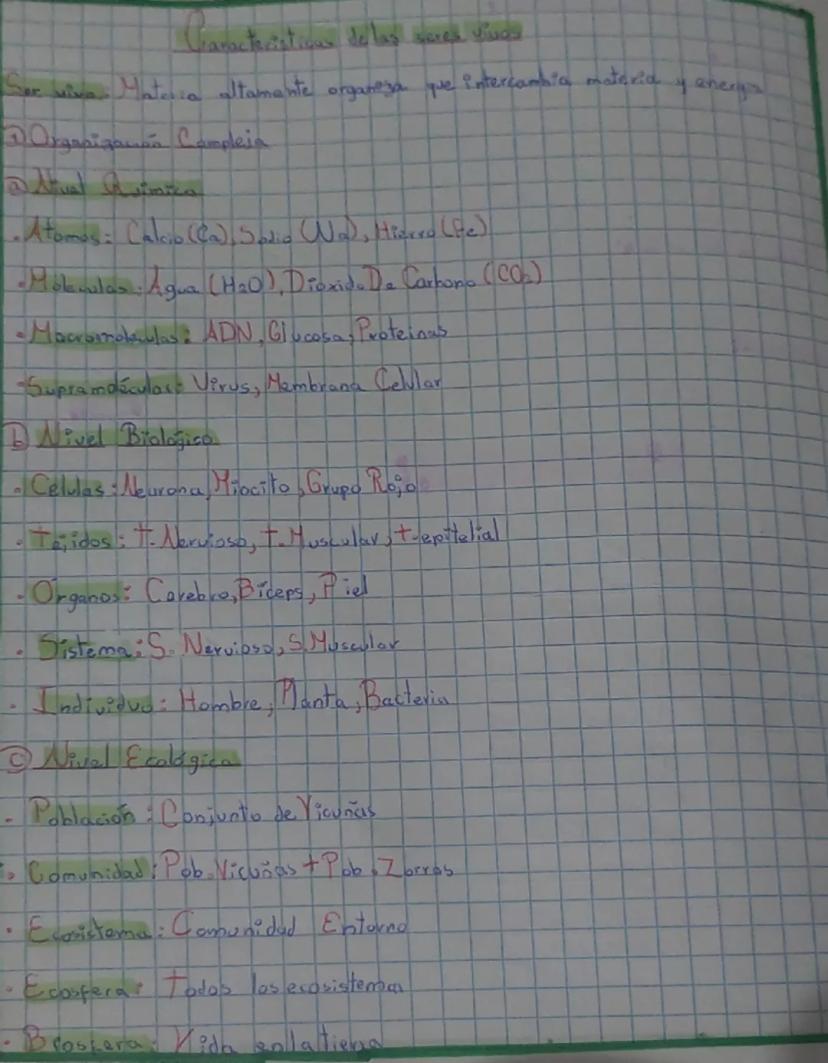 Características de las seres vivos
Ser vivo: Materia altamente organeza que intercambia materia y energia
① Organización Compleja
ⓐ Nivel Química
• Atomos: Calcio (Ca), Sodio (Na), Hierro (Fe)
• Móleculas: Agua (H2O), Dioxido De Carbono (CO2)
• Macromoleculas: ADN, Glucosa, Proteinas
• Supramoléculas: Virus, Membrana Celular
ⓑ Nivel Biologico
• Células: Neurona, Miocito, Grupo Rojo
• Téjidos: T. Nervioso, t. Muscular, t. epitelial
• Organos: Cerebro, Biceps, Piel
• Sistema: S. Nervioso, S. Muscular
• Individuo: Hombre, Planta, Bacteria
ⓒ Nivel Ecológica
• Población: Conjunto de Vicuñas
• Comunidad: Pob. Vicuñas + Pob. Zorros
• Ecosistema: Comunidad Entorno
• Ecosfera: Todos los ecosistemas
• Biosfera: Vida en la tierra